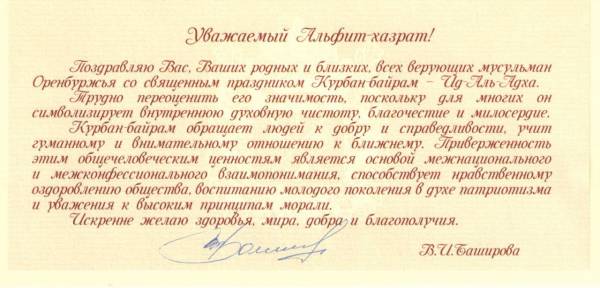 Уважаемый Альфит-хазрат!
Поздравляю Вас, Ваших родных и близких, всех верующих мусульман
Оренбуржья со священным праздником Курбан-байрам – Ид-Аль-Адха.
Трудно переоценить его значимость, поскольку для многих он
символизирует внутреннюю духовную чистоту, благочестие и милосердие.
Курбан-байрам обращает людей к добру и справедливости, учит
гуманному и внимательному отношению к ближнему. Приверженность
этим общечеловеческим ценностям является основой межнационального
и межконфессионального взаимопонимания, способствует нравственному
оздоровлению общества, воспитанию молодого поколения в духе патриотизма
и уважения к высоким принципам морали.
Искренне желаю здоровья, мира, добра и благополучия.
В.И.Баширова